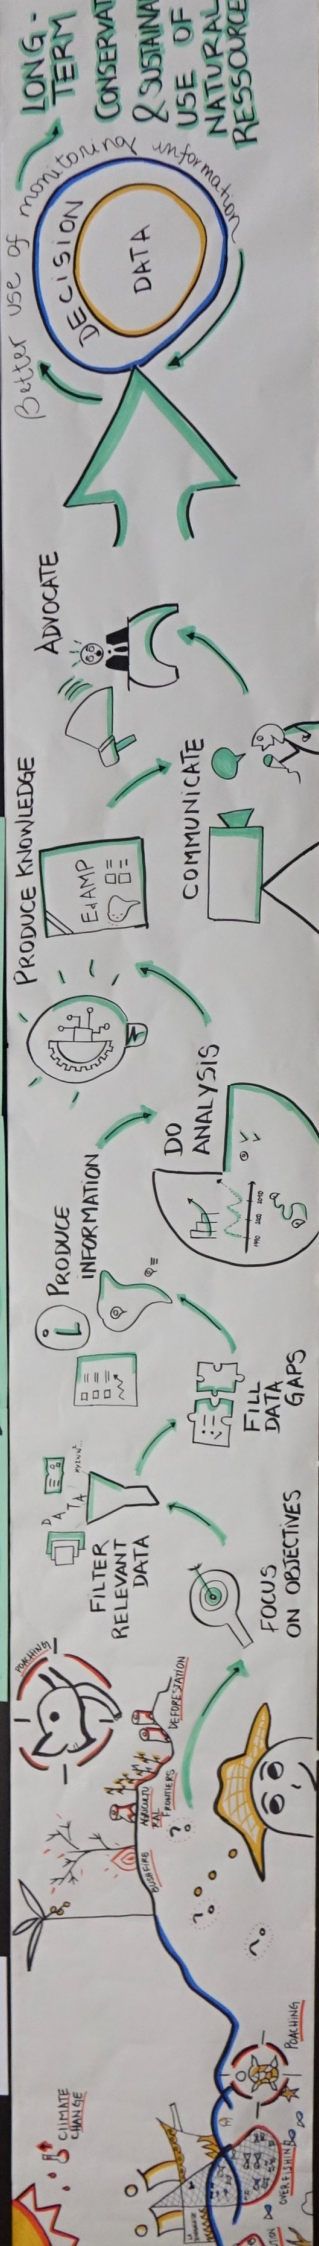 CLIMATE
CHANGE
OVERFISHING
POACHING
POACHING
BUSHFIRE
FRONTIERS
DEFORESTATION
FOCUS
ON OBJECTIVES
FILTER
RELEVANT
DATA
DATA
FILL
DATA
GAPS
PRODUCE
INFORMATION
i
DO
ANALYSIS
PRODUCE KNOWLEDGE
EdAMP
COMMUNICATE
ADVOCATE
Better use of monitoring information
DECISION
DATA
LONG-
TERM
CONSERVAT
& SUSTAINA
USE OF
NATURAL
RESSOURCE